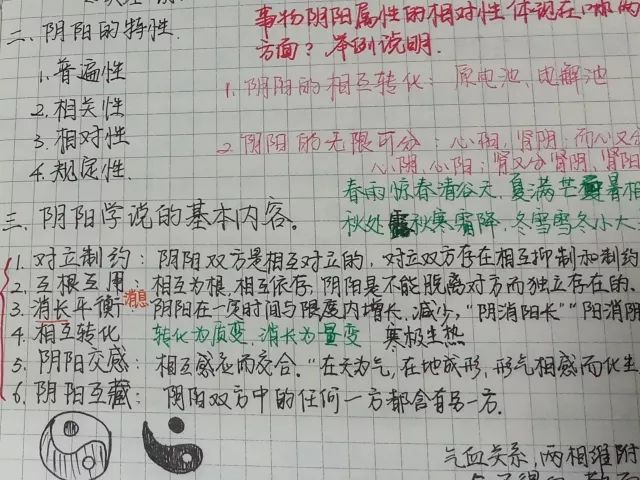 事物阴阳属性的相对性体现在哪两
二、阴阳的特性.
方面？举例说明.
1.普遍性
1.阴阳的相互转化：原电池、电解池
2.相关性
3.相对性
2.阴阳的无限可分：心阴,肾阴.而心又分
4.规定性.
心阴,心阳；肾又分肾阴,肾阳
春雨惊春清谷天,夏满芒暑相
三.阴阳学说的基本内容。
秋处露秋寒霜降,冬雪雪冬小大
1.对立制约：阴阳双方是相互对立的，对立双方存在相互抑制和制约
2.互根互用：相互为根.相互依存,阴阳是不能脱离对方而独立存在的.
3.消长平衡 消息 阴阳在一定时间与限度内增长.减少，“阴消阳长”“阳消阴
4.相互转化 转化为质变,消长为量变 寒极生热
5.阴阳交感：相互感应而交合.“在天为气,在地成形,形气相感而化生
6.阴阳互藏：阴阳双方中的任何一方都含有另一方.
气血关系,两相维附